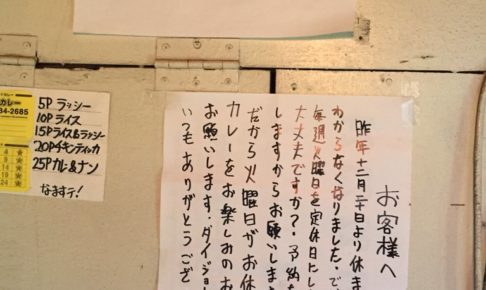 カレー
34-2685
5P ラッシー
10P ライス
15P ライス&ラッシー
20P チキンティッカ
25P カレー&ナン
なまステ!
お客様へ
昨年十二月二十日より休ま
わからなくなりました。で
毎週火曜日を定休日にし
大丈夫ですか?予約を
しますからお願いしま
だから火曜日がお休
カレーをお楽しみのお
お願いします。ダイジョー
いつもありがとうござ